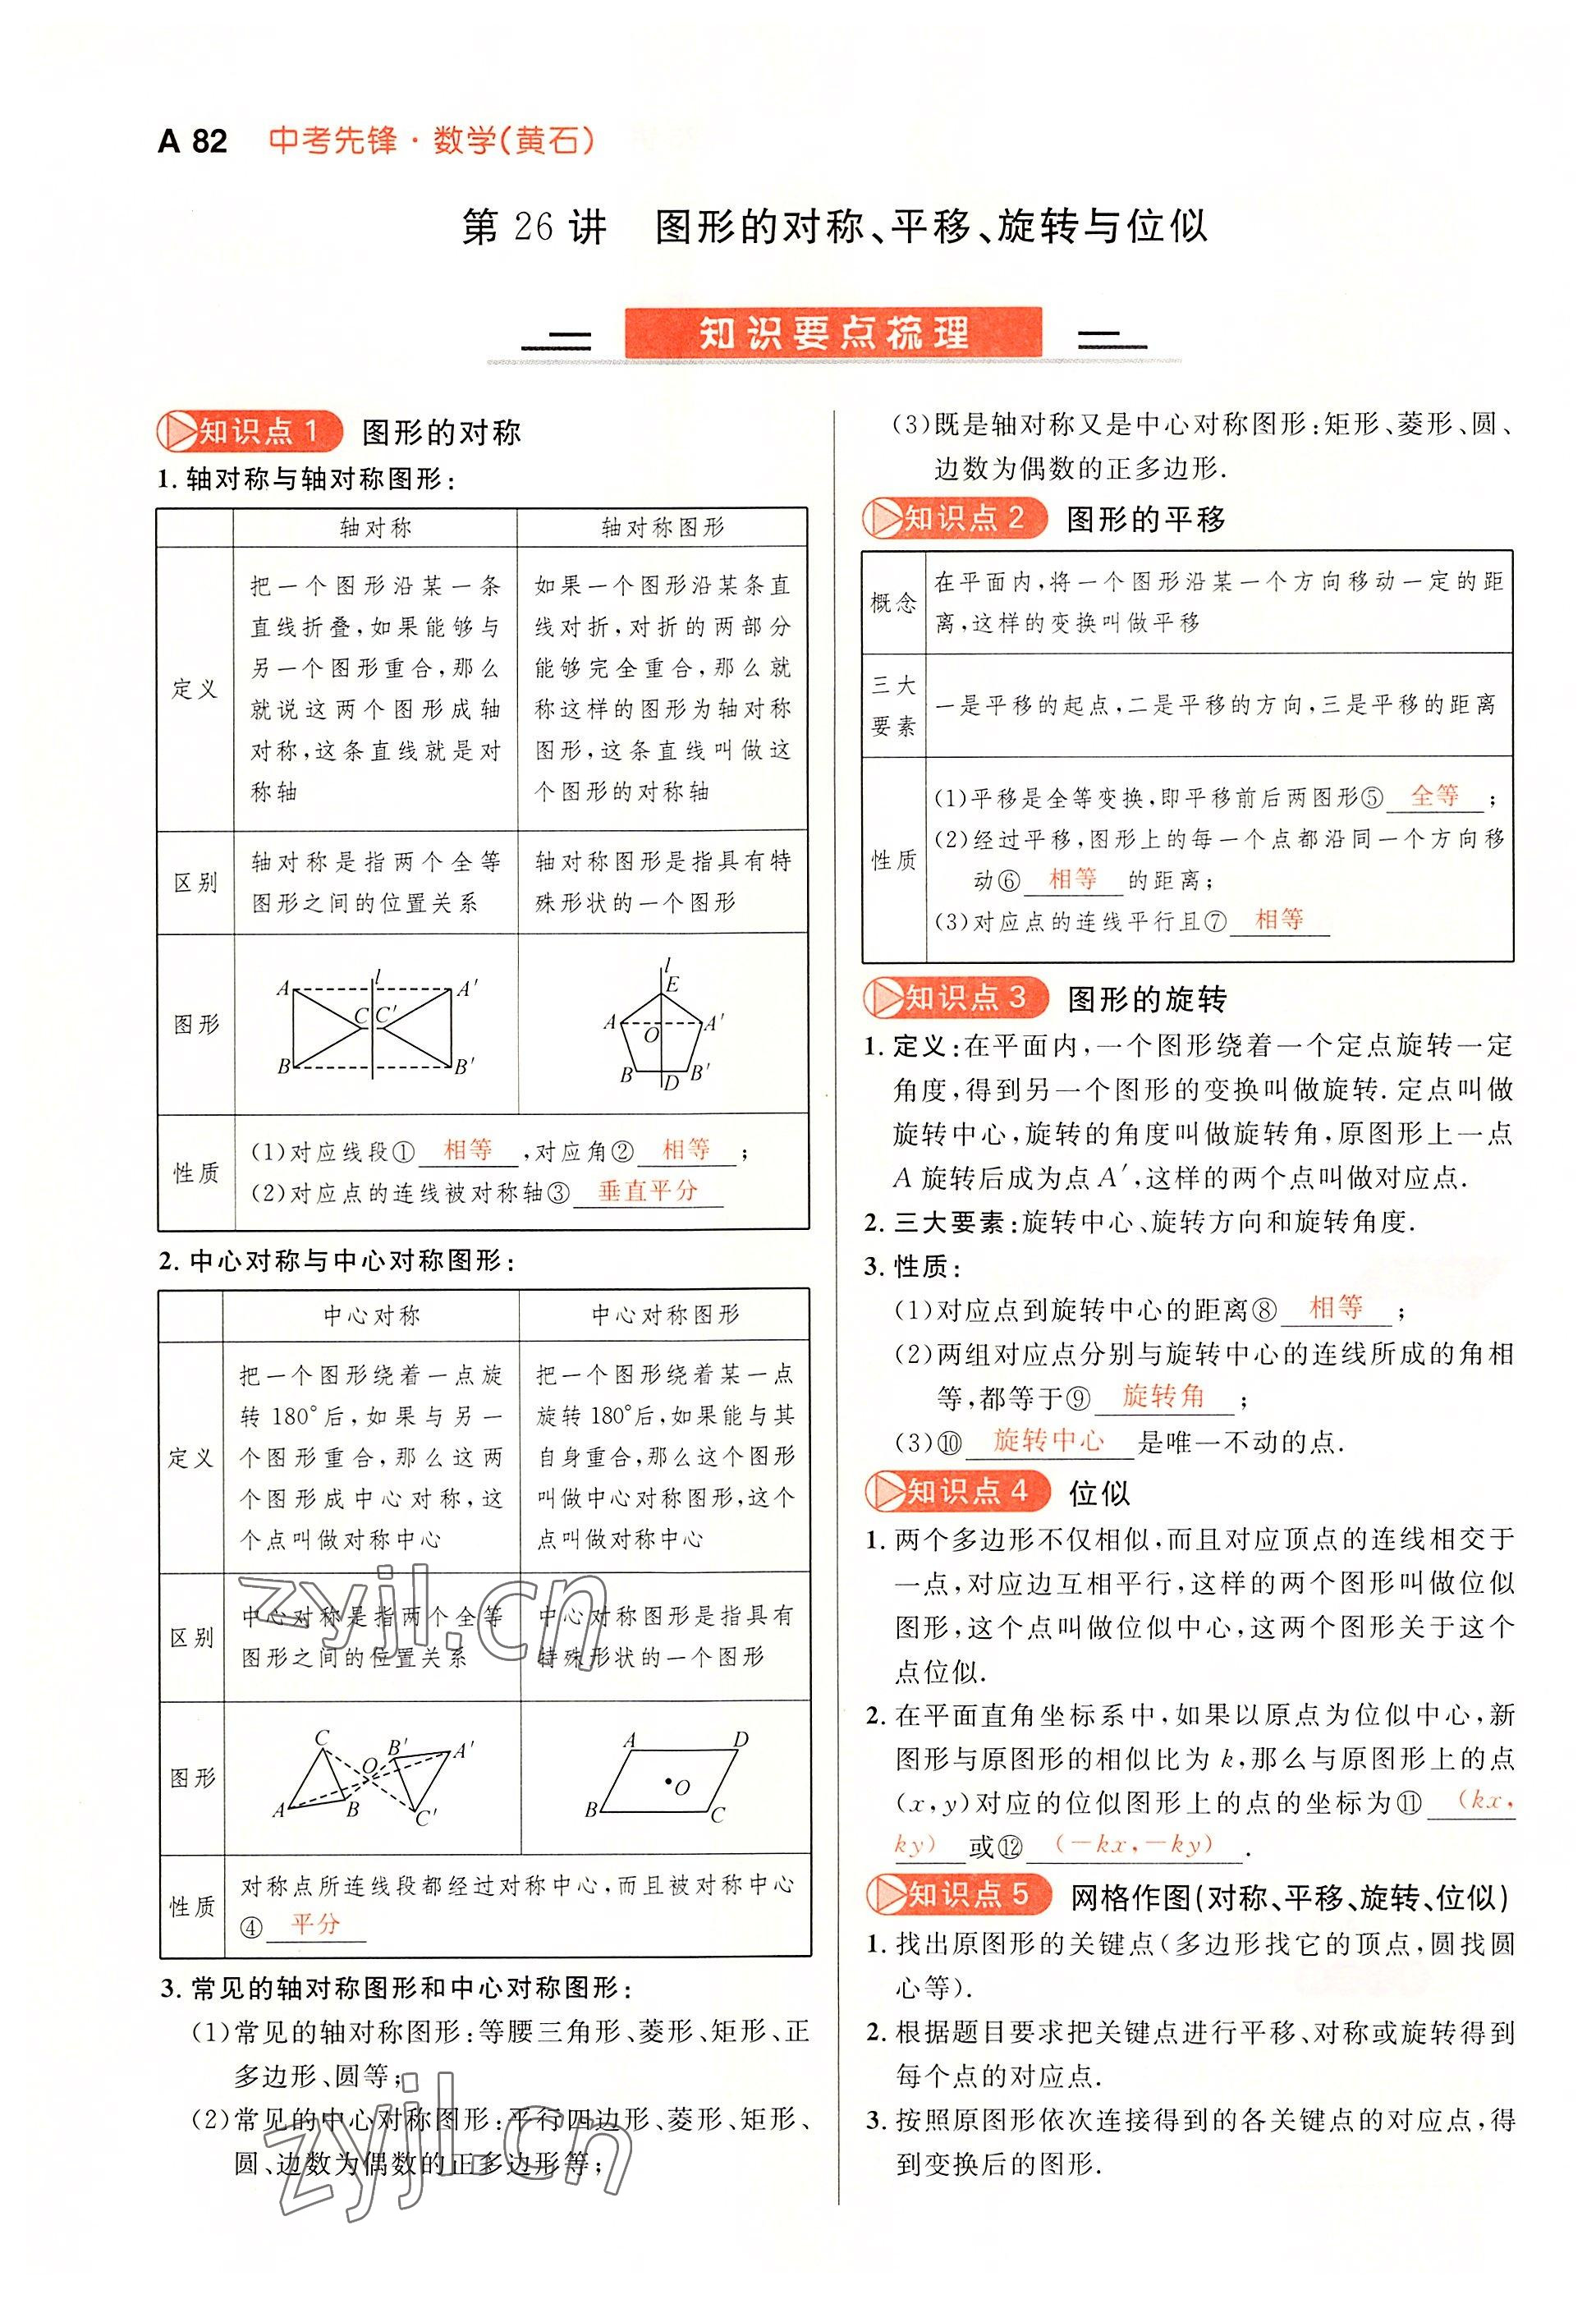 A 82 中考先锋·数学(黄石)
第 26 讲 图形的对称、平移、旋转与位似
知识要点梳理
知识点1 图形的对称
1. 轴对称与轴对称图形:
轴对称 轴对称图形
定义
把一个图形沿某一条
直线折叠,如果能够与
另一个图形重合,那么
就说这两个图形成轴
对称,这条直线就是对
称轴
如果一个图形沿某条直
线对折,对折的两部分
能够完全重合,那么就
称这样的图形为轴对称
图形,这条直线叫做这
个图形的对称轴
区别
轴对称是指两个全等
图形之间的位置关系
轴对称图形是指具有特
殊形状的一个图形
图形
l
A A′
C C′
B B′
l
E
A A′
O
B D B′
性质
(1)对应线段① 相等 ,对应角② 相等 ;
(2)对应点的连线被对称轴③ 垂直平分
2. 中心对称与中心对称图形:
中心对称 中心对称图形
定义
把一个图形绕着一点旋
转180°后,如果与另一
个图形重合,那么这两
个图形成中心对称,这
个点叫做对称中心
把一个图形绕着某一点
旋转180°后,如果能与其
自身重合,那么这个图形
叫做中心对称图形,这个
点叫做对称中心
区别
中心对称是指两个全等
图形之间的位置关系
中心对称图形是指具有
特殊形状的一个图形
图形
C B′ A′
O
A B C′
A D
O
B C
性质
对称点所连线段都经过对称中心,而且被对称中心
④ 平分
3. 常见的轴对称图形和中心对称图形:
(1)常见的轴对称图形:等腰三角形、菱形、矩形、正
多边形、圆等;
(2)常见的中心对称图形:平行四边形、菱形、矩形、
圆、边数为偶数的正多边形等;
(3)既是轴对称又是中心对称图形:矩形、菱形、圆、
边数为偶数的正多边形.
知识点2 图形的平移
概念
在平面内,将一个图形沿某一个方向移动一定的距
离,这样的变换叫做平移
三大
要素
一是平移的起点,二是平移的方向,三是平移的距离
性质
(1)平移是全等变换,即平移前后两图形⑤ 全等 ;
(2)经过平移,图形上的每一个点都沿同一个方向移
动⑥ 相等 的距离;
(3)对应点的连线平行且⑦ 相等
知识点3 图形的旋转
1. 定义:在平面内,一个图形绕着一个定点旋转一定
角度,得到另一个图形的变换叫做旋转. 定点叫做
旋转中心,旋转的角度叫做旋转角,原图形上一点
A 旋转后成为点 A′,这样的两个点叫做对应点.
2. 三大要素:旋转中心、旋转方向和旋转角度.
3. 性质:
(1)对应点到旋转中心的距离⑧ 相等 ;
(2)两组对应点分别与旋转中心的连线所成的角相
等,都等于⑨ 旋转角 ;
(3)⑩ 旋转中心 是唯一不动的点.
知识点4 位似
1. 两个多边形不仅相似,而且对应顶点的连线相交于
一点,对应边互相平行,这样的两个图形叫做位似
图形,这个点叫做位似中心,这两个图形关于这个
点位似.
2. 在平面直角坐标系中,如果以原点为位似中心,新
图形与原图形的相似比为 k,那么与原图形上的点
(x,y)对应的位似图形上的点的坐标为⑪ (kx,
ky) 或⑫ (-kx,-ky) .
知识点5 网格作图(对称、平移、旋转、位似)
1. 找出原图形的关键点(多边形找它的顶点,圆找圆
心等).
2. 根据题目要求把关键点进行平移、对称或旋转得到
每个点的对应点.
3. 按照原图形依次连接得到的各关键点的对应点,得
到变换后的图形.
zyjl.cn
zyjl.cn